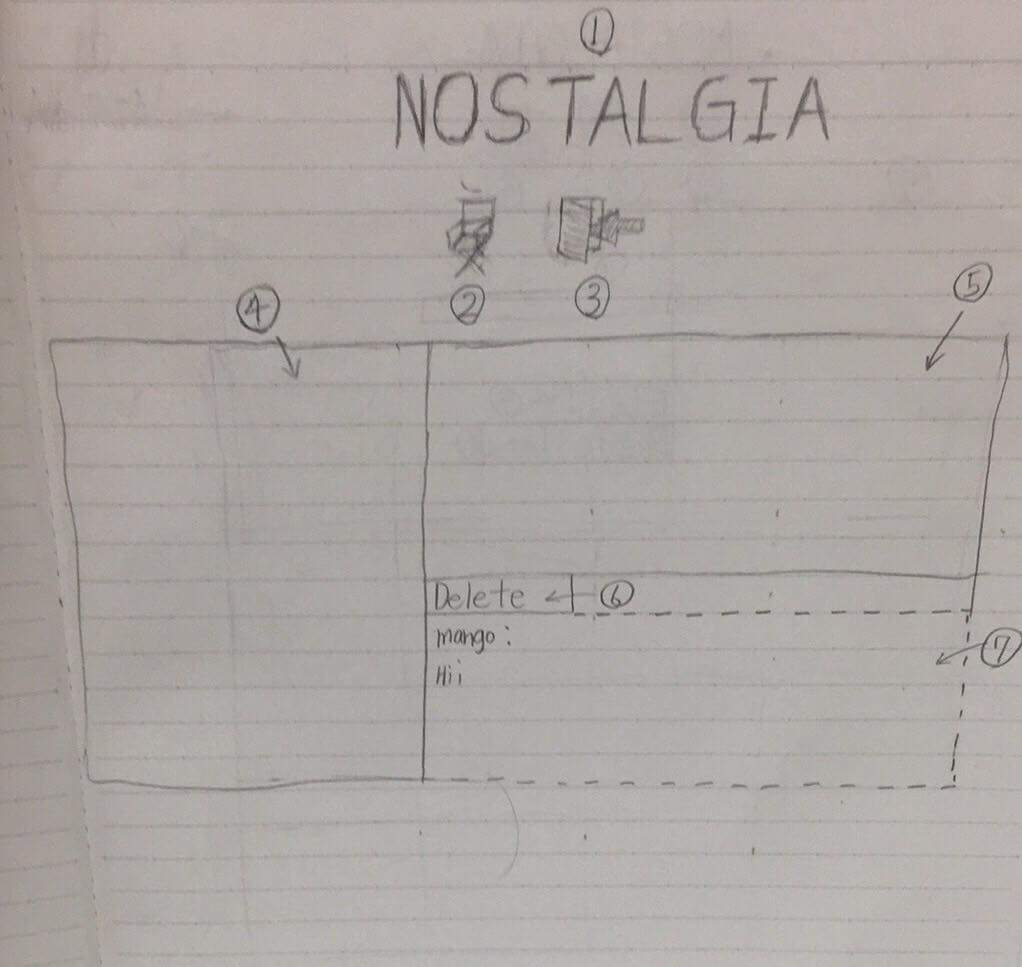 ①
NOSTALGIA
② ③
④ ⑤
Delete ⑥
mango:
Hii
⑦